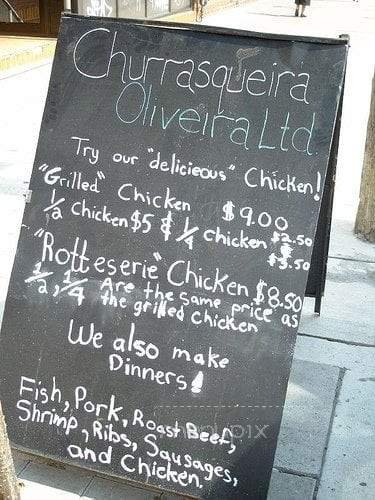 Churrasqueira
Oliveira Ltd.
Try our "delicieous" Chicken!
"Grilled" Chicken $9.00
1/2 chicken $5 & 1/4 chicken $2.50
$3.50
"Rotteserie" Chicken $8.50
1/2, 1/4 Are the same price as
the grilled chicken
We also make
Dinners!
Fish, Pork, Roast Beef,
Shrimp, Ribs, Sausages,
and Chicken.
menupix